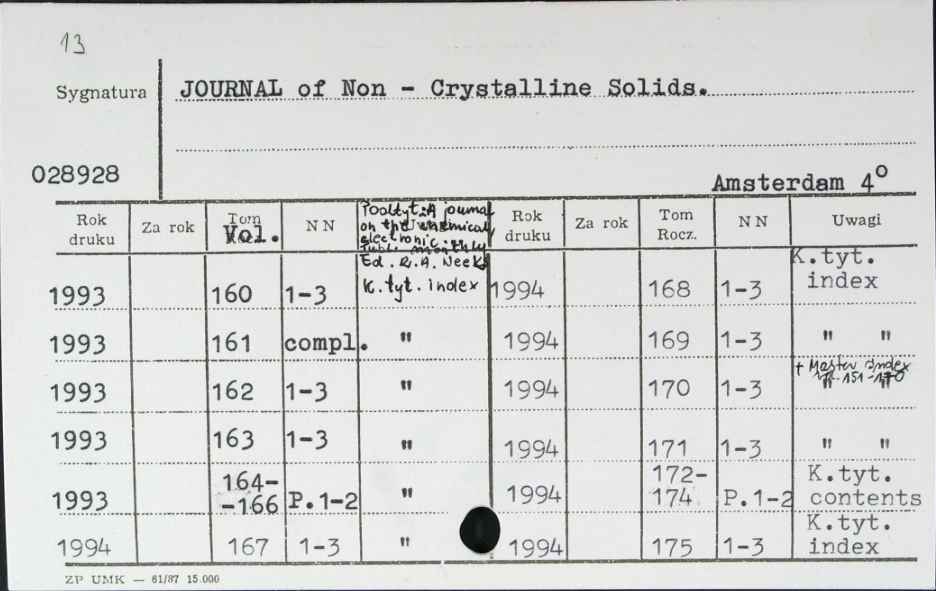 13
Sygnatura JOURNAL of Non - Crystalline Solids.
028928
Amsterdam 4°
Rok druku Za rok Tom Vol. NN Podtyt.: A journal on the chemical, electronic Rok druku Za rok Tom Rocz. NN Uwagi
1993 160 1-3 Ed. R.A. Weeks K.tyt. index 1994 168 1-3 K.tyt. index
1993 161 compl. " 1994 169 1-3 " "
1993 162 1-3 " 1994 170 1-3 + Master Index 151-170 " "
1993 163 1-3 " 1994 171 1-3 " "
1993 164--166 P.1-2 " 1994 172-174 P.1-2 K.tyt. contents
1994 167 1-3 " 1994 175 1-3 K.tyt. index
ZP UMK — 61/87 15.000